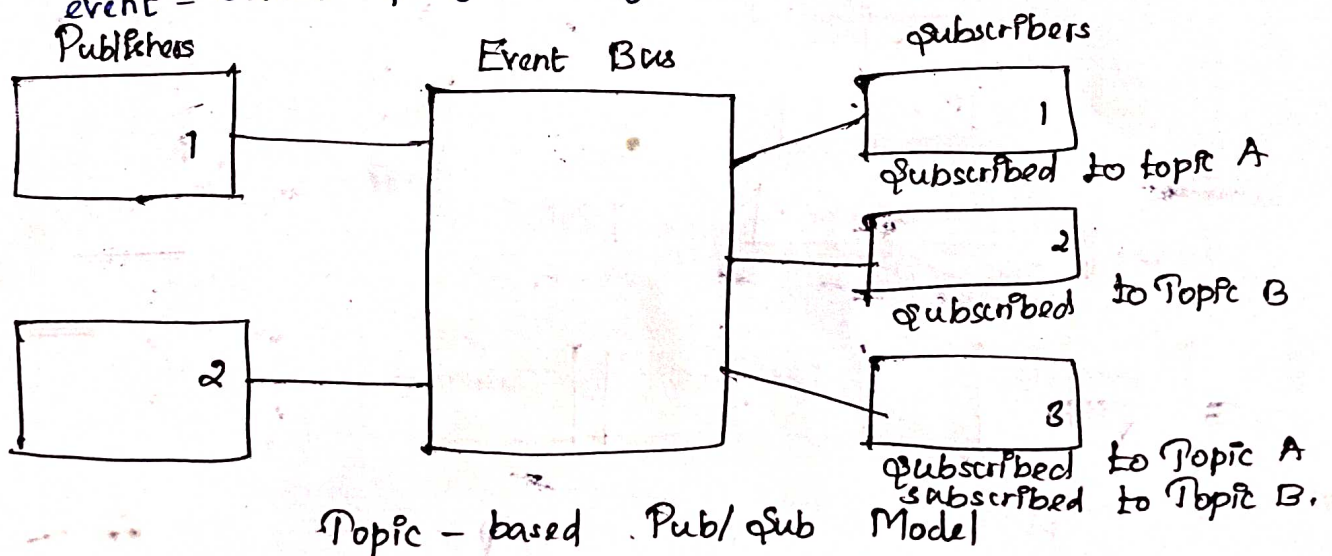 event -
Publishers
Event Bus
Subscribers
1
1
Subscribed to topic A
2
Subscribed to Topic B
2
3
Subscribed to Topic A
subscribed to Topic B.
Topic - based Pub/Sub Model